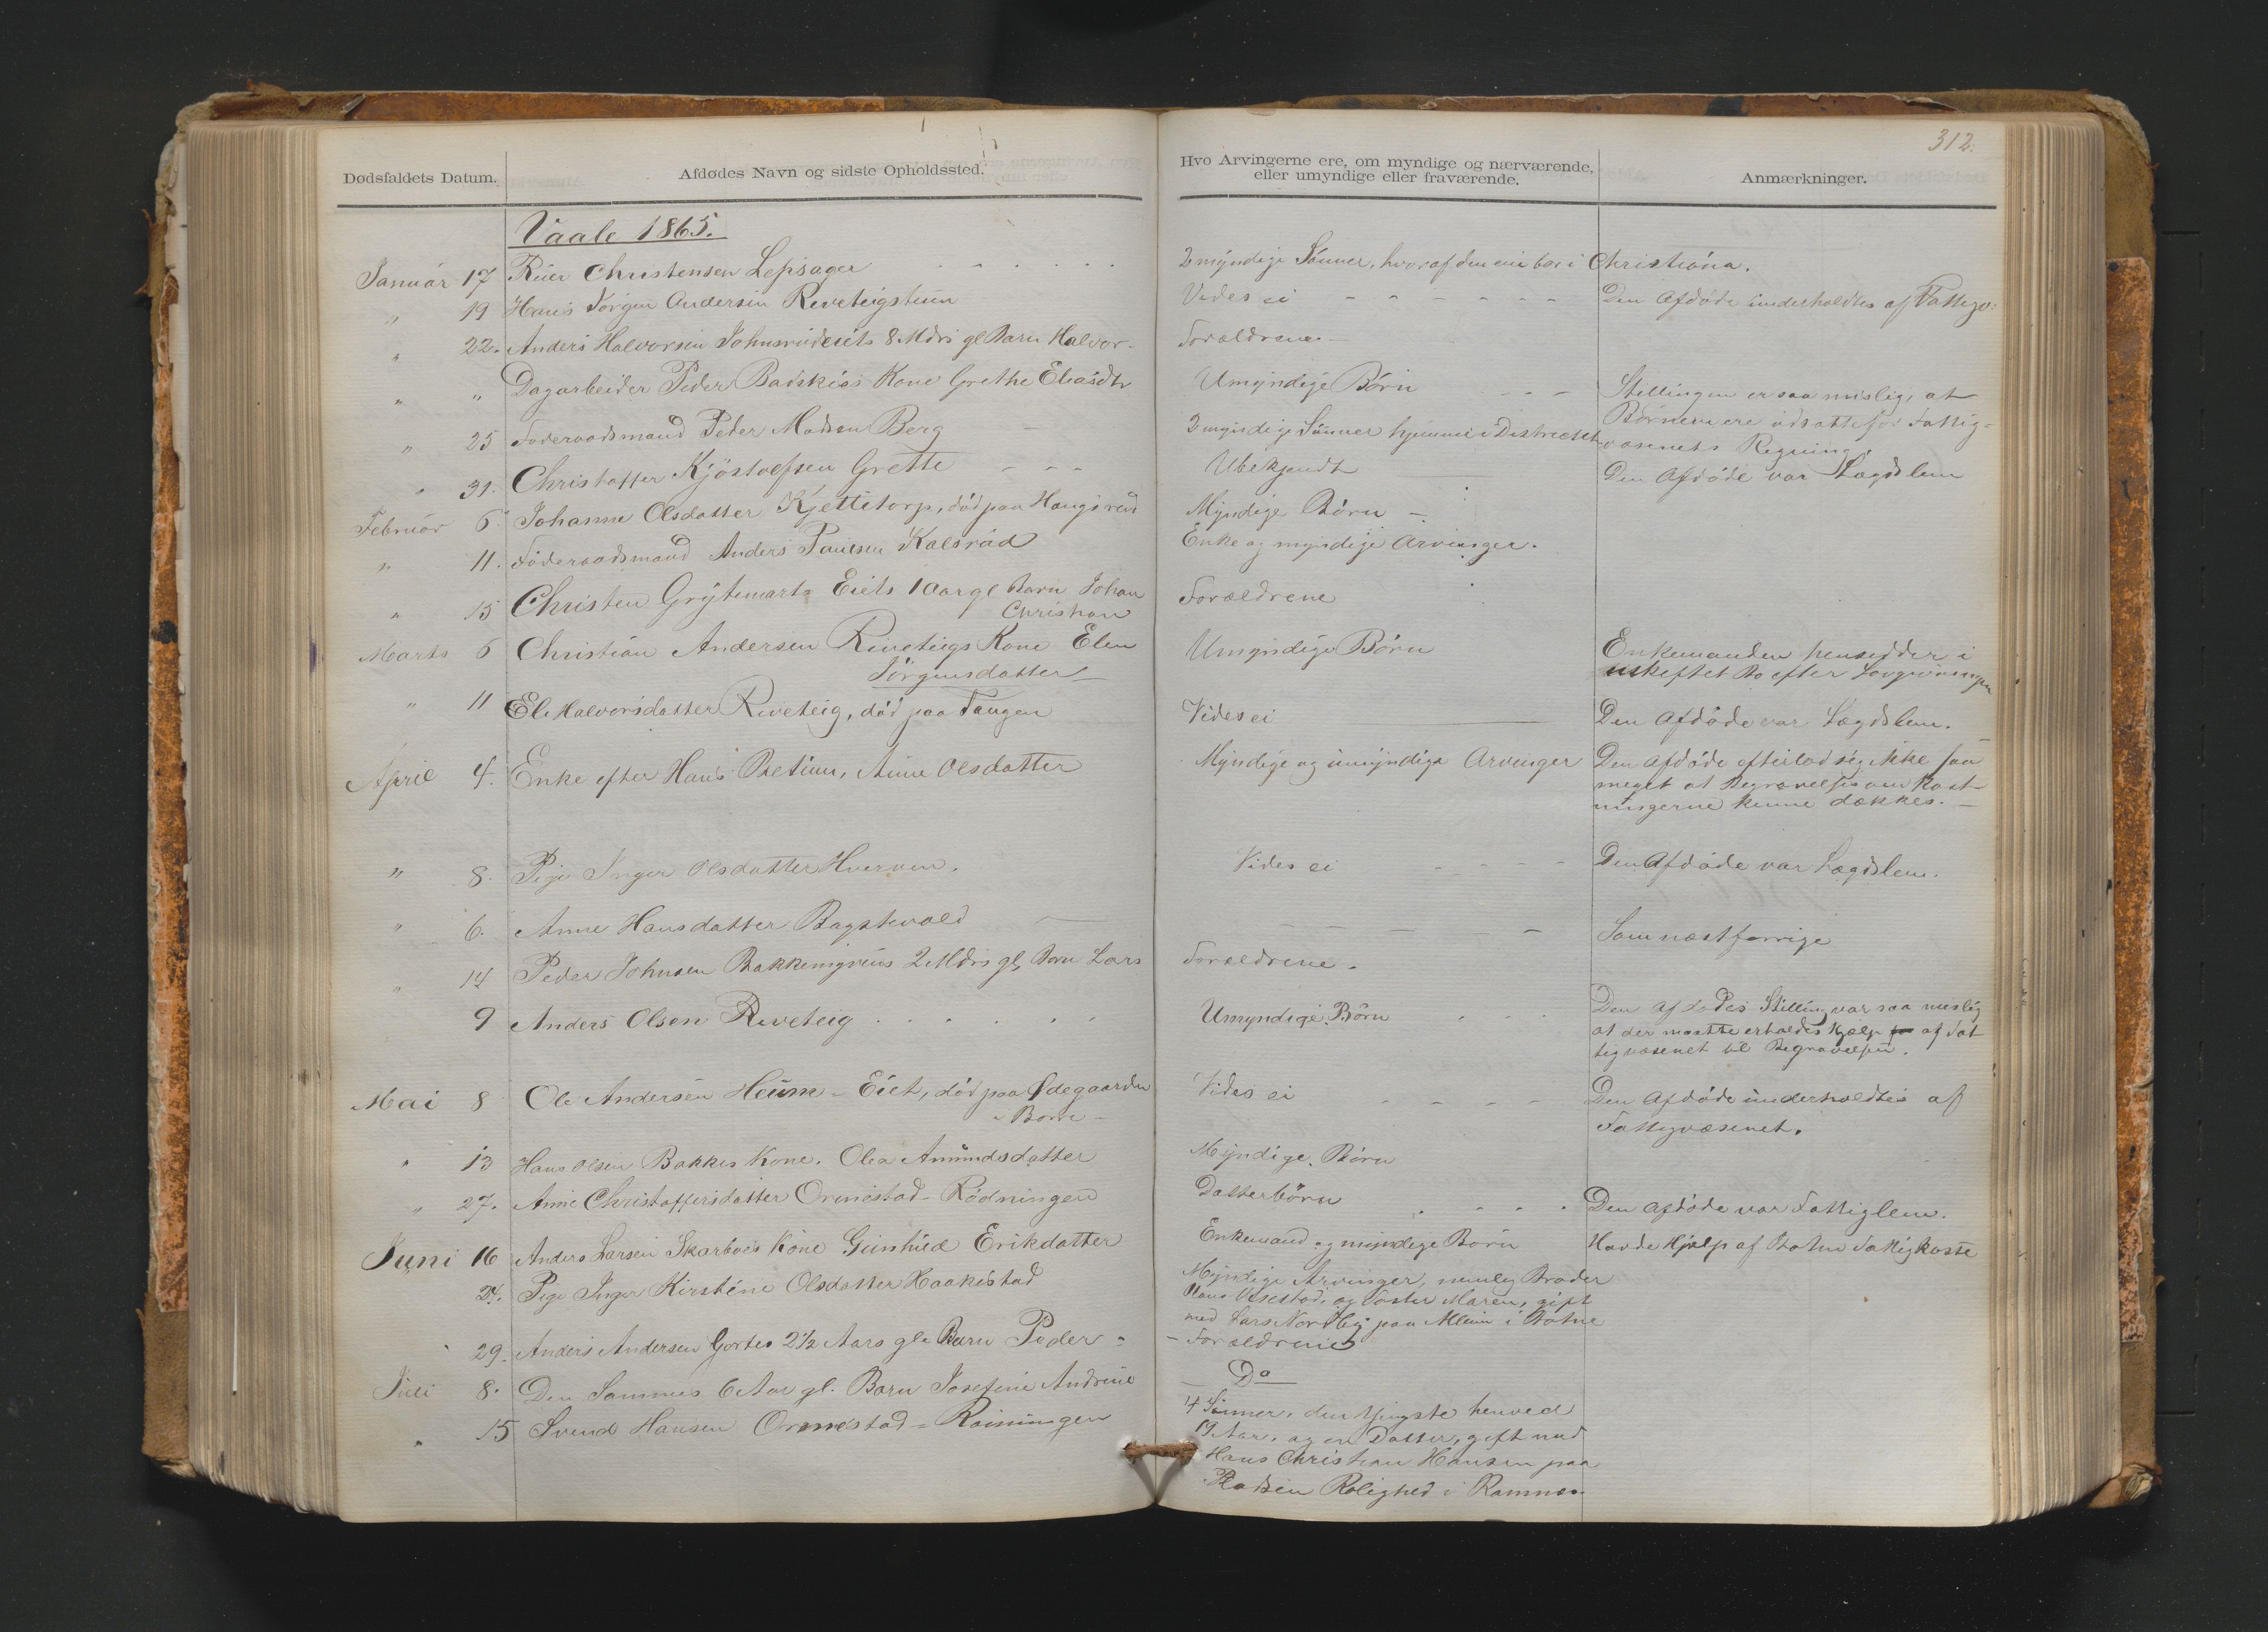 312.
Dødsfaldets Datum. Afdødes Navn og sidste Opholdssted. Hvo Arvingerne ere, om myndige og nærværende, Anmærkninger.
eller umyndige eller fraværende.
Vaale 1865.
Januar 17 Christensen Lepsager 2 myndige Sønner, hvoraf den ene bor i Christiania.
" 19 Hans Jørgen Andersen Reveteigstuen Vides ei Den Afdøde underholdtes af Fattigv:
" 22. Anders Halvorsen Johnsrudeiets 8 Mdrs gl Barn Halvor Forældrene
" " Dagarbeider Peder Badskiæs Kone Grethe Eliasdtr Umyndige Børn Stillingen er saa mislig, at
Børnene ere udsatte for Fattig-
væsenets Regning.
" 25 Føderaadsmand Peder Madsen Berg 2 myndige Sønner hjemme i Districtet
" 31. Christoffer Kjøstolfsen Grette Ubekjendt Den Afdøde var Lægdslem
Februar 6 Johanne Olsdatter Kjettitorp, død paa Haugsrud Myndige Børn
" 11. Føderaadsmand Anders Paulsen Kalsrød Enke og myndige Arvinger.
" 15 Christen Grytemarks Eiets 1 Aar gl Barn Johan Forældrene
Christian
Marts 6 Christian Andersen Reveteigs Kone Elen Umyndige Børn Enkemanden hensidder i
Jørgensdatter uskiftet Bo efter Lovgivningen
" 11 Eli Halvorsdatter Reveteig, død paa Tangen Vides ei Den Afdøde var Lægdslem.
April 4. Enke efter Hans Anne Olsdatter Myndige og umyndige Arvinger Den Afdøde efterlod sig ikke saa
meget at Begravelsesomkost-
ningerne kunne dækkes.
" 8. Pige Inger Olsdatter Hverven. Vides ei Den Afdøde var Lægdslem.
" 6. Anne Hansdatter Bagstevold Som næstforrige
" 14 Peder Johnsen 2 Mdrs gl. Barn Lars Forældrene.
9 Anders Olsen Reveteig Umyndige Børn Den Afdødes Stilling var saa mislig
at der maatte erholdes Hjælp af Fat
tigvæsenet til Begravelsen.
Mai 8 Ole Andersen Heum-Eiet, død paa Ødegaarden Vides ei Den Afdøde underholdtes af
- Borre - Fattigvæsenet.
" 13 Hans Olsen Bakkes Kone. Olea Amundsdatter Myndige Børn
" 27. Anne Christoffersdatter Ormestad-Rødningen Datterbørn Den Afdøde var Fattiglem.
Juni 16 Anders Larsen Skarboes Kone Gunhild Erikdatter Enkemand og myndige Børn Havde Hjælp af Botne Fattigkasse
24. Pige Inger Kirstine Olsdatter Haakestad Myndige Arvinger, nemlig Broder
Hans Vesestad, og Søster Maren, gift
med Lars Nordby paa i Botne
" 29. Anders Andersen Gortes 2 1/2 Aars gle Barn Peder - Forældrene
Juli 8. Den Sammes 6 Aar gl. Barn Josefine Andrine Do
" 15 Svend Hansen Ormestad- 4 Sønner, den yngste henved
19 Aar, og en Datter, gift med
Hans Christian Hansen paa
Pladsen Rolighed i Ramnes.